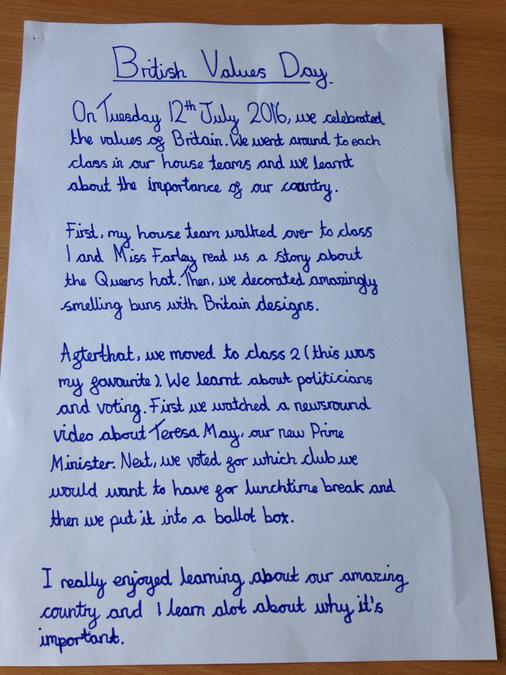 British Values Day.
On Tuesday 12th July 2016, we celebrated
the values of Britain. We went around to each
class in our house teams and we learnt
about the importance of our country.
First, my house team walked over to class
1 and Miss Farley read us a story about
the Queens hat. Then, we decorated amazingly
smelling buns with Britain designs.
Afterthat, we moved to class 2 (this was
my favourite). We learnt about politicians
and voting. First we watched a newsround
video about Teresa May, our new Prime
Minister. Next, we voted for which club we
would want to have for lunchtime break and
then we put it into a ballot box.
I really enjoyed learning about our amazing
country and I learn alot about why it's
important.